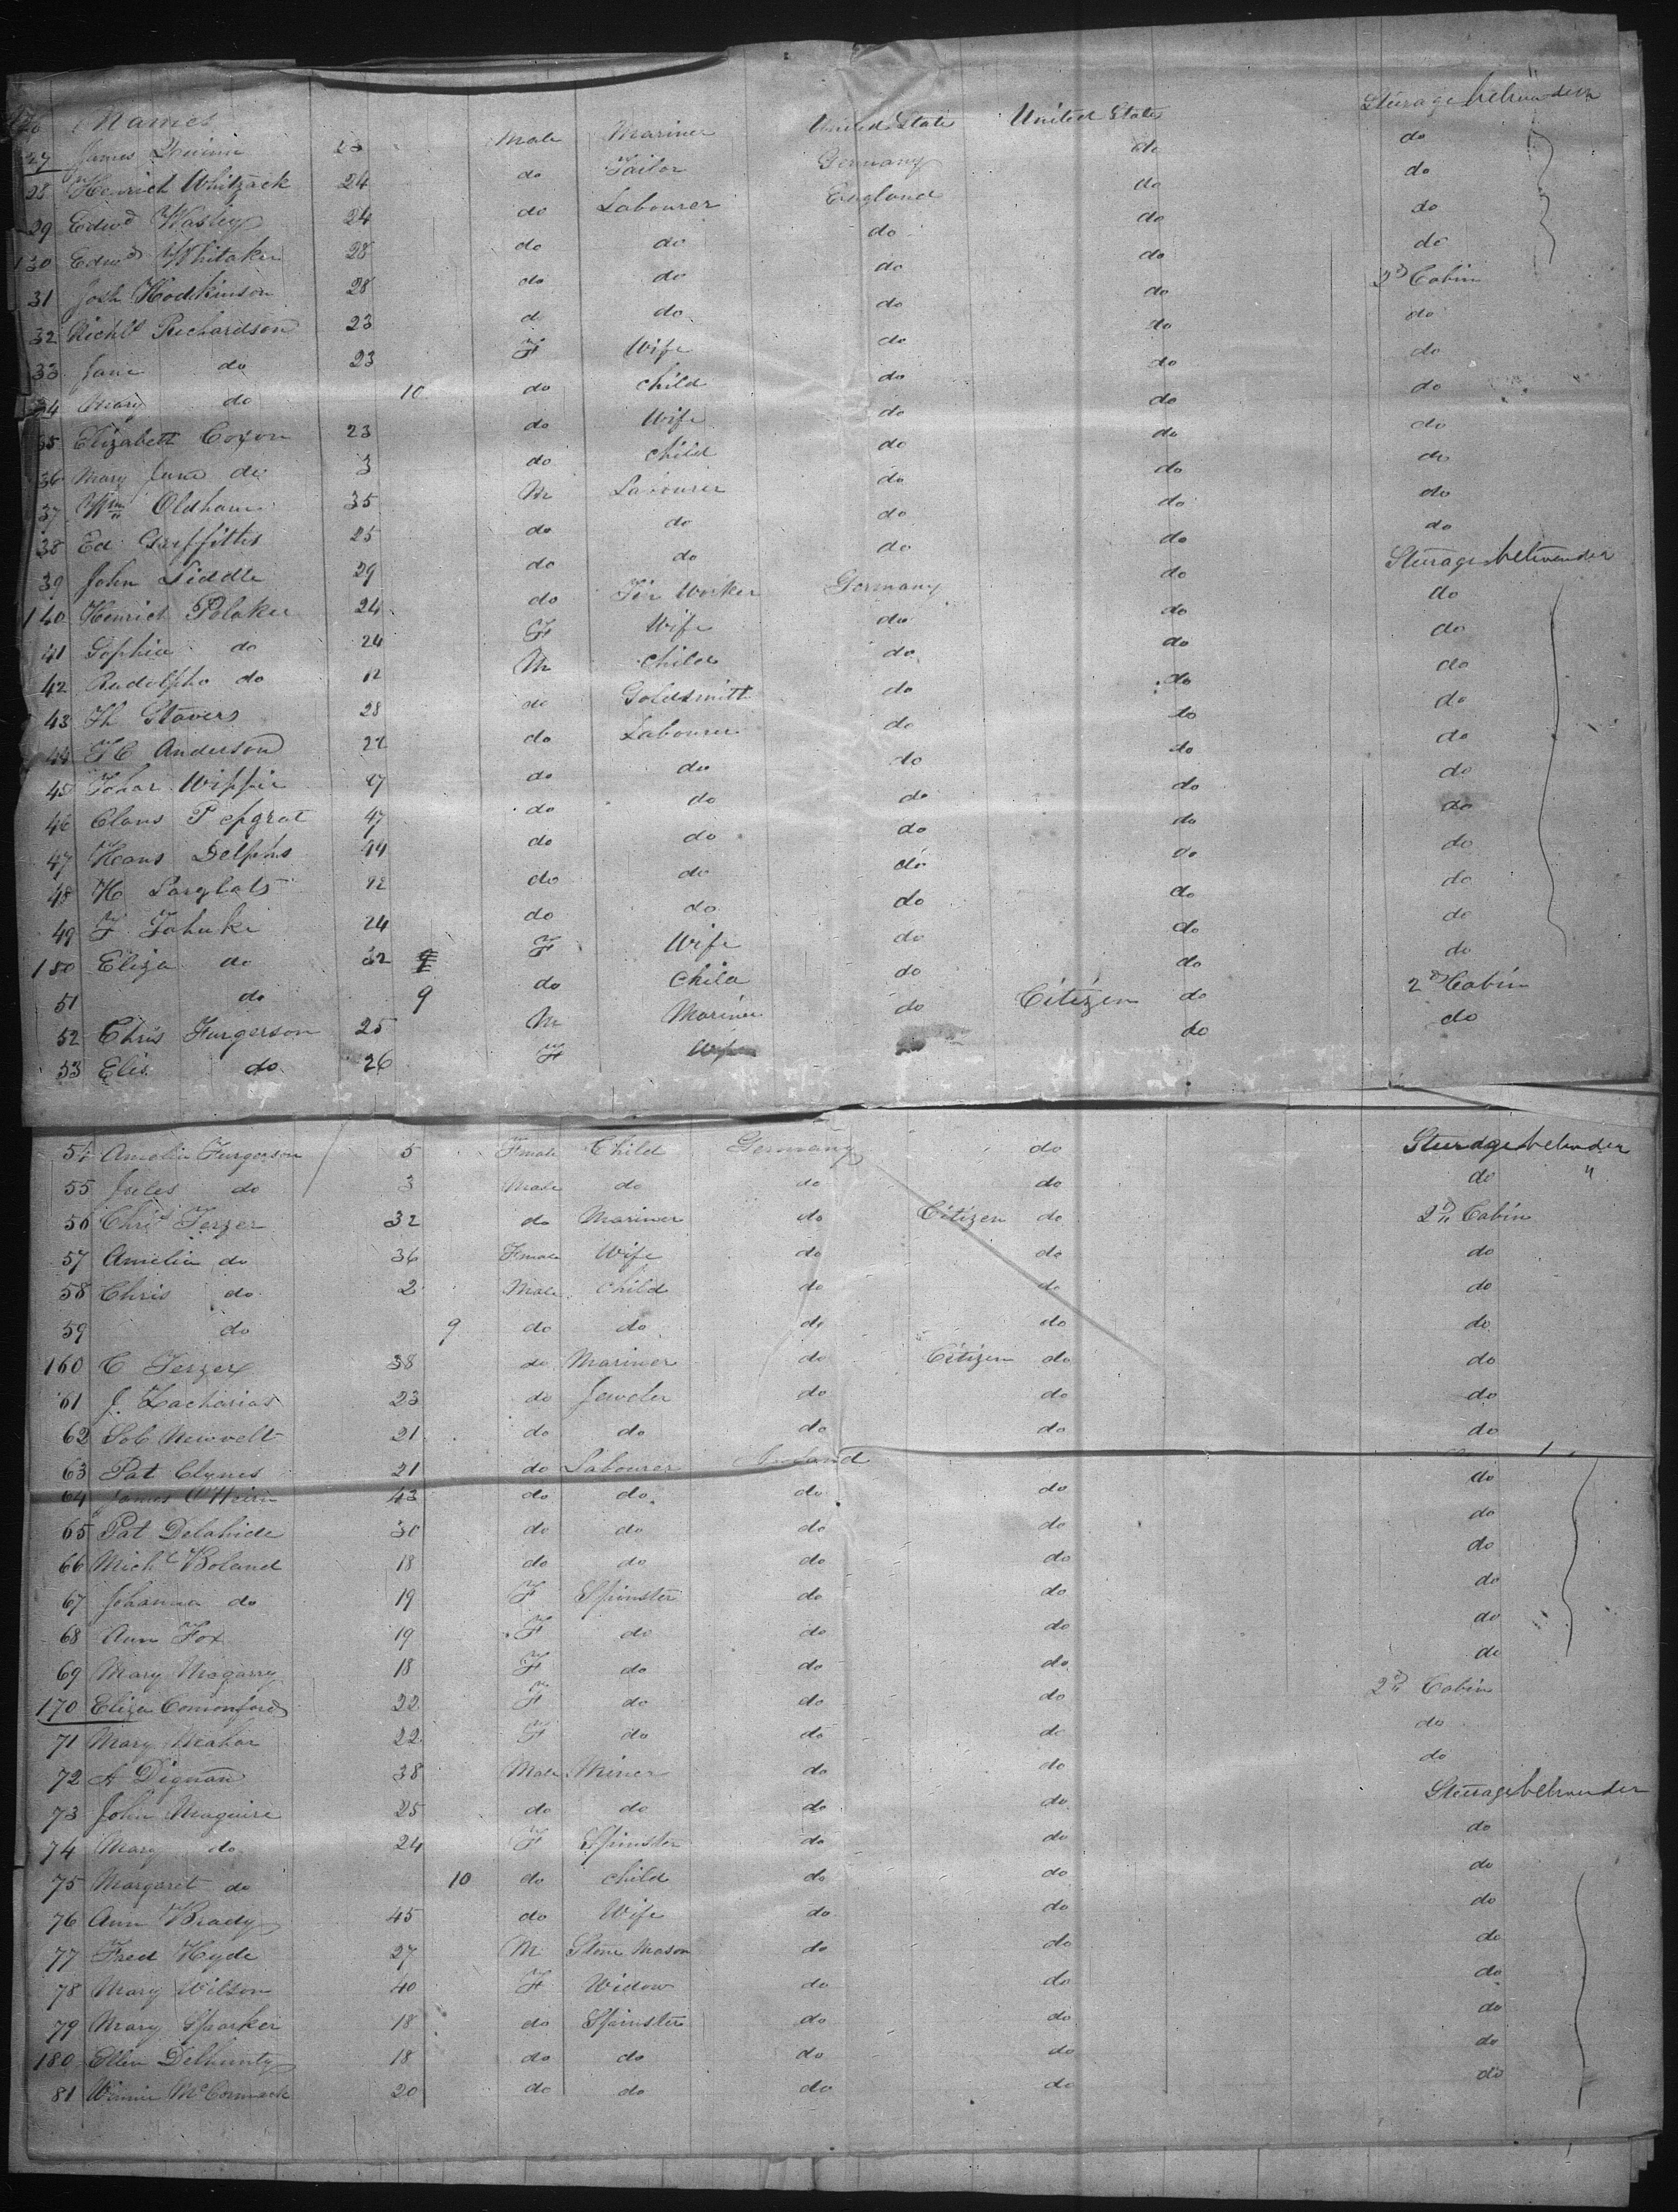 No Names
27 James Quinn 23 Male Mariner United State United State Steerage between deck
28 Henrich Whitzack 24 do Tailor Germany do do
29 Edwd Wasley 24 do Labourer England do do
130 Edwd Whitaker 28 do do do do do
31 Josh Hodkinson 28 do do do do do
32 Richd Richardson 23 do do do do 2d Cabin
33 Jane do 23 F Wife do do do
34 Mary do 10 do child do do do
35 Elizabeth Coxon 23 do Wife do do do
36 Mary Jane do 3 do child do do do
37 Wm Oldham 35 M Labourer do do do
38 Ed Griffitts 25 do do do do do
39 John Liddle 29 do do do do do
140 Henrich Polaker 24 do Worker Germany do Steerage between der
41 Sophia do 24 F Wife do do do
42 Rudolpho do M child do do do
43 Th Stavers 28 do Goldsmitt do do do
44 Anderson 22 do Labourer do do do
45 do do do do do
46 Claus 47 do do do do do
47 Hans Delphs 44 do do do do do
48 H do do do do do
49 F Tahuke 24 do do do do do
150 Eliza do 32 F Wife do do do
51 do 9 do Child do do do
52 Chris Furgerson 25 M Mariner do Citizen do 2d Cabin
53 Elis do 26 F Wife do do
54 Amelia Furgerson 5 Fmale Child Germany do Steerage betw der
55 Jules do 3 Male do do do do "
56 Chris Terzer 32 do Mariner do Citizen do 2d Cabin
57 Amelia do 36 Fmale Wife do do do
58 Chris do 2 Male Child do do do
59 do 9 do do do do do
160 C Terzer 38 do Mariner do Citizen do do
61 J. Zacharias 23 do Jeweler do do do
62 Sob Newvelt 21 do do do do do
63 Pat Clynes 21 do Labourer
64 James 43 do do do do do
65 Pat Delahide 30 do do do do do
66 Michl Boland 18 do do do do do
67 Johanna do 19 F Spinster do do do
68 Ann Fox 19 F do do do do
69 Mary Magarry 18 F do do do do
170 Eliza Comonford 22 F do do do 2d Cabin
71 Mary Mahar 22 F do do do do
72 A Dignan 38 Male Miner do do do
73 John Maguire 25 do do do do Steerage between der
74 Mary do 24 F Spinster do do do
75 Margaret do 10 do child do do do
76 Ann Brady 45 do Wife do do do
77 Fred Hyde 27 M Stone Mason do do do
78 Mary Wilson 40 F Widow do do do
79 Mary Sparker 18 do Spinster do do do
180 Ellen Delhunty 18 do do do do do
81 Winnie McCormack 20 do do do do do